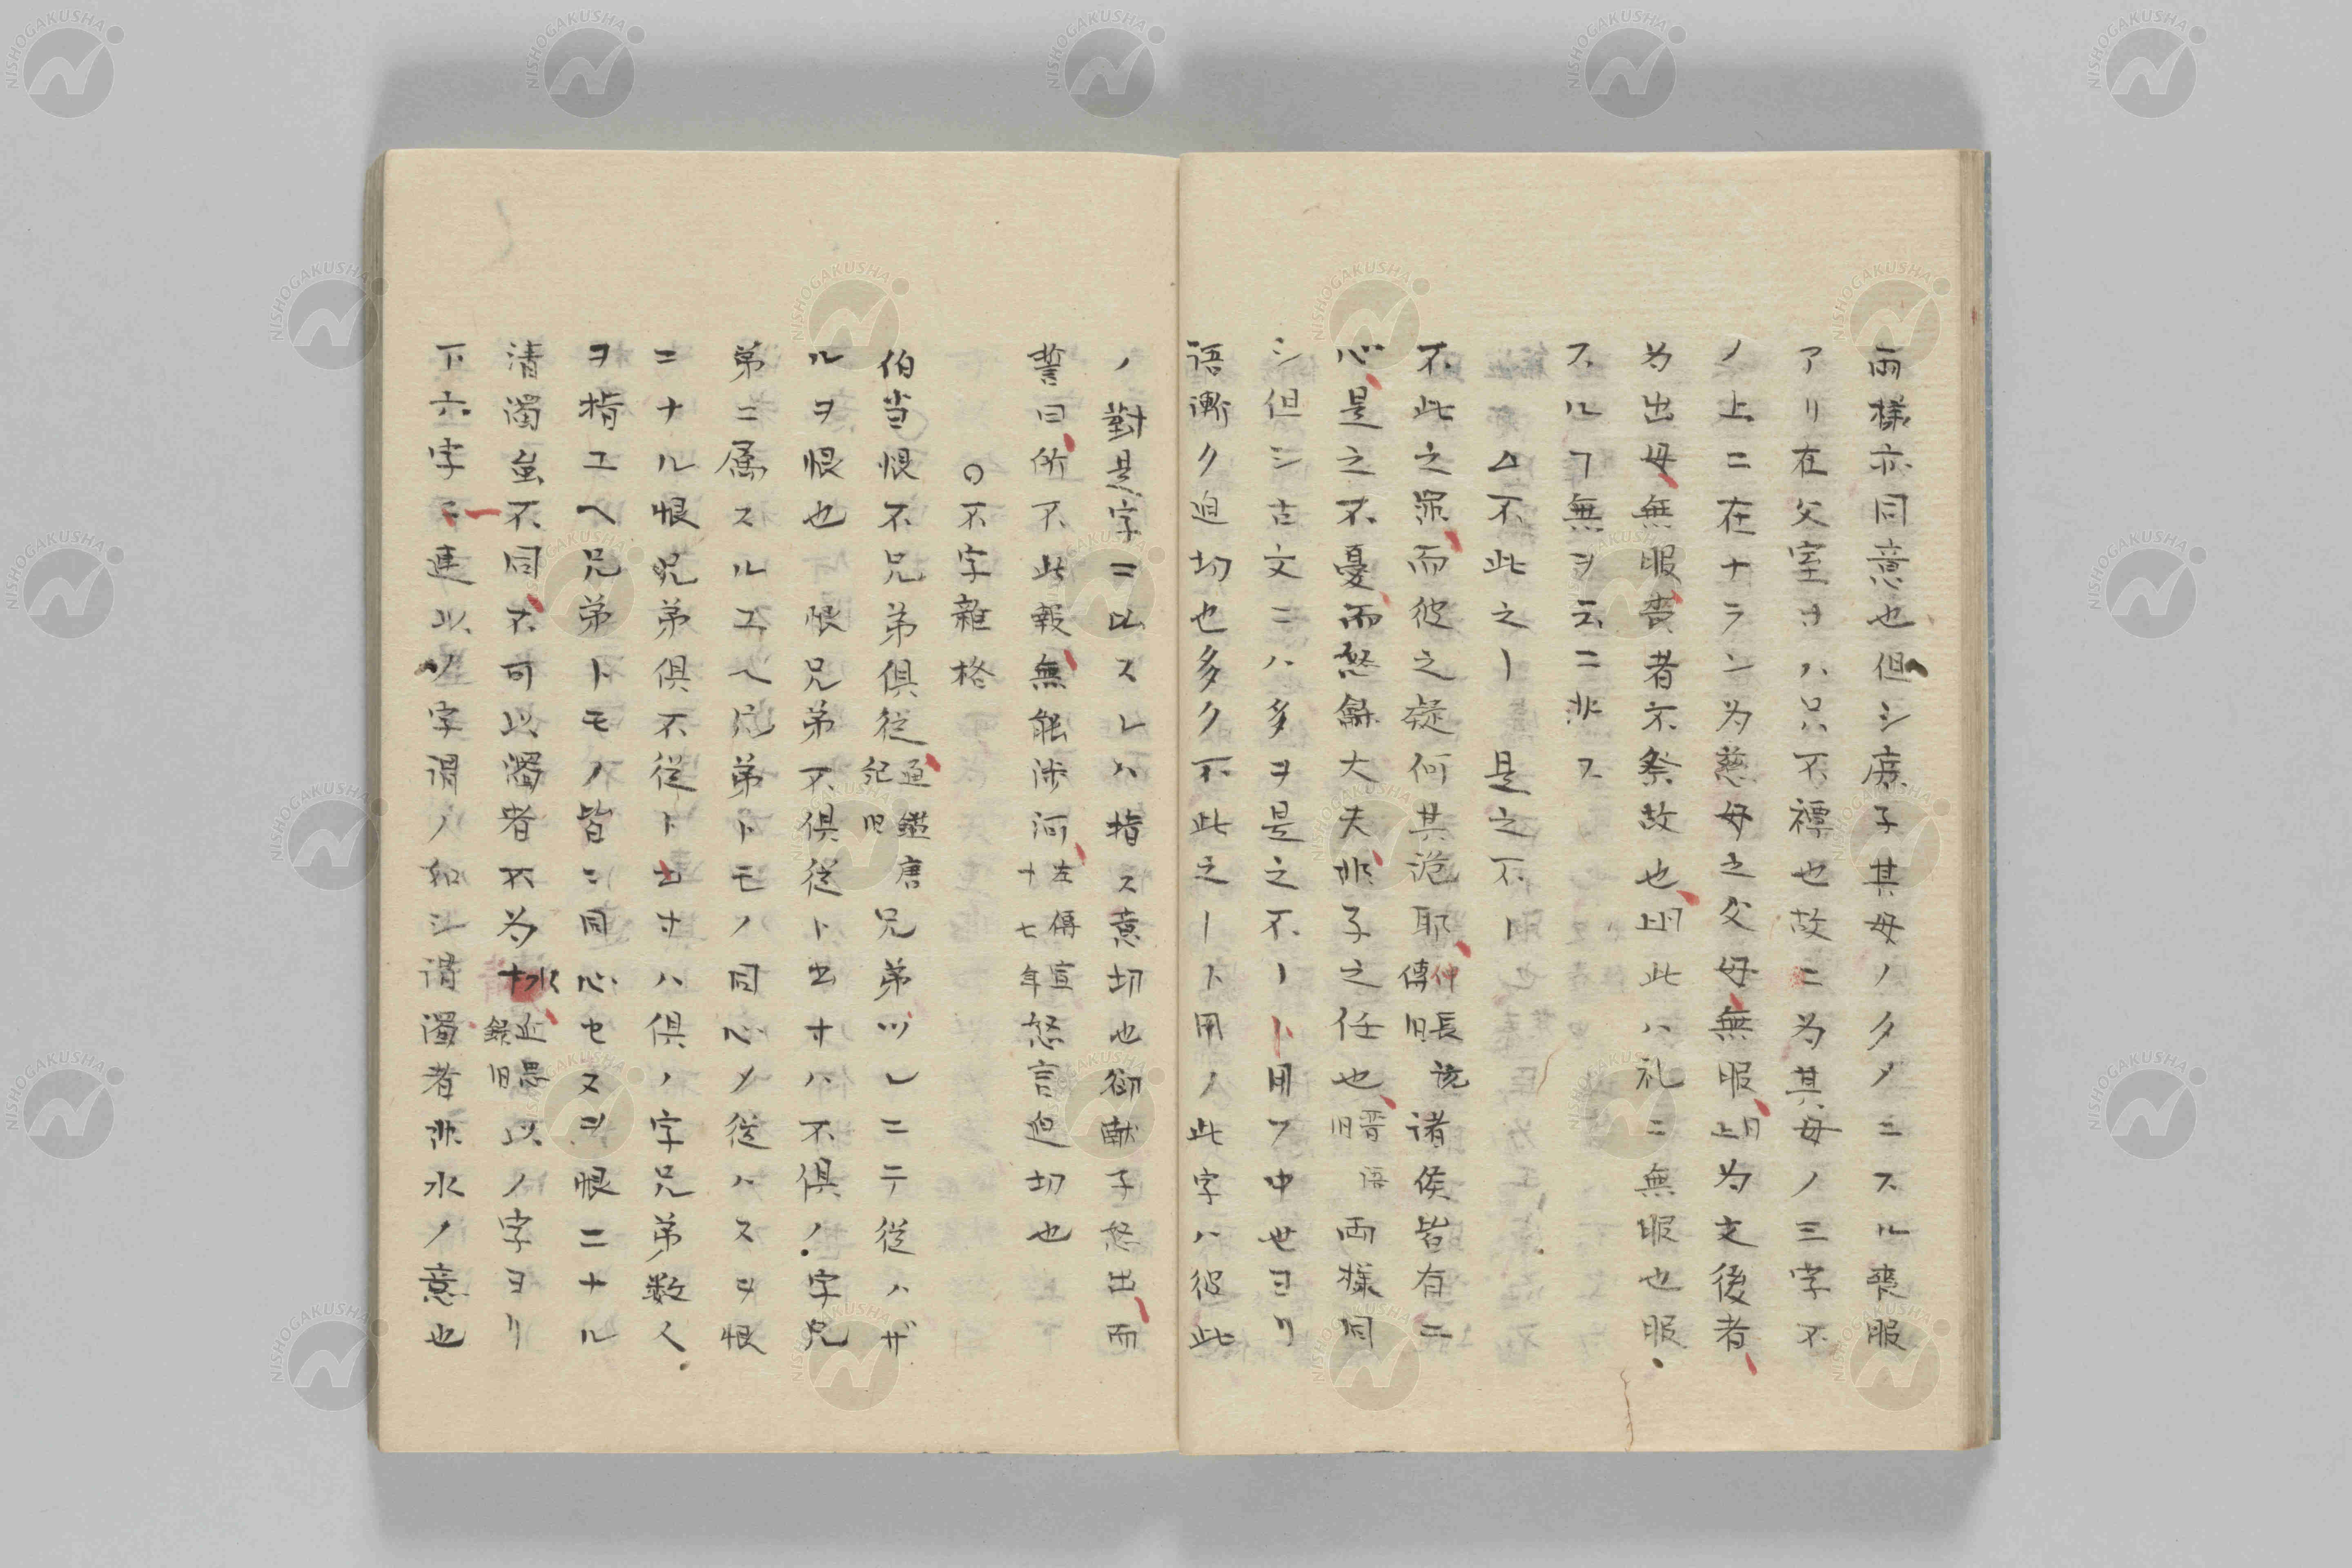 両様亦同意也但シ庶子其母ノタメニスル喪服
アリ在父室オハ只不禫也故ニ為其母ノ三字不
ノ上ニ在ナラン為慈母之父母無服上同為父後者
為出母無服喪者不祭故也上同此ハ礼ニ無服也服
スルヿ無ヲ云ニ非ス
△不此之ー 是之不ー
不此之罪而彼之疑何其泥耶仲長傳旧説諸侯皆有二
心是之不憂而怒鮮大夫非子之任也晋語旧両様同
シ但シ古文ニハ多ヲ是之不ート用フ中世ヨリ
语漸ク迫切也多ク不此之ート用ノ此字ハ彼此
ノ對是字ニ比スレハ指ス意切也郤献子怒出而
誓曰所不此報無能渉河左傳宣十七年怒言迫切也
○不字雑格
伯当恨不兄弟俱従通鑑唐紀旧兄弟ツレニテ従ハザ
ルヲ恨也 恨兄弟不俱従ト出オハ不俱ノ字兄
弟ニ属スルエヘ兄弟トモノ同心メ従ハスヲ恨
ニナル恨兄弟俱不従ト出オハ俱ノ字兄弟数人
ヲ指エヘ兄弟トモノ皆ニ同心セヌヲ恨ニナル
清濁虽不同不可以濁者不为水近思錄旧以ノ字ヨリ
下六字ニ連以ノ字谓ノ如シ谓濁者非水ノ意也
NISHOGAKUSHA